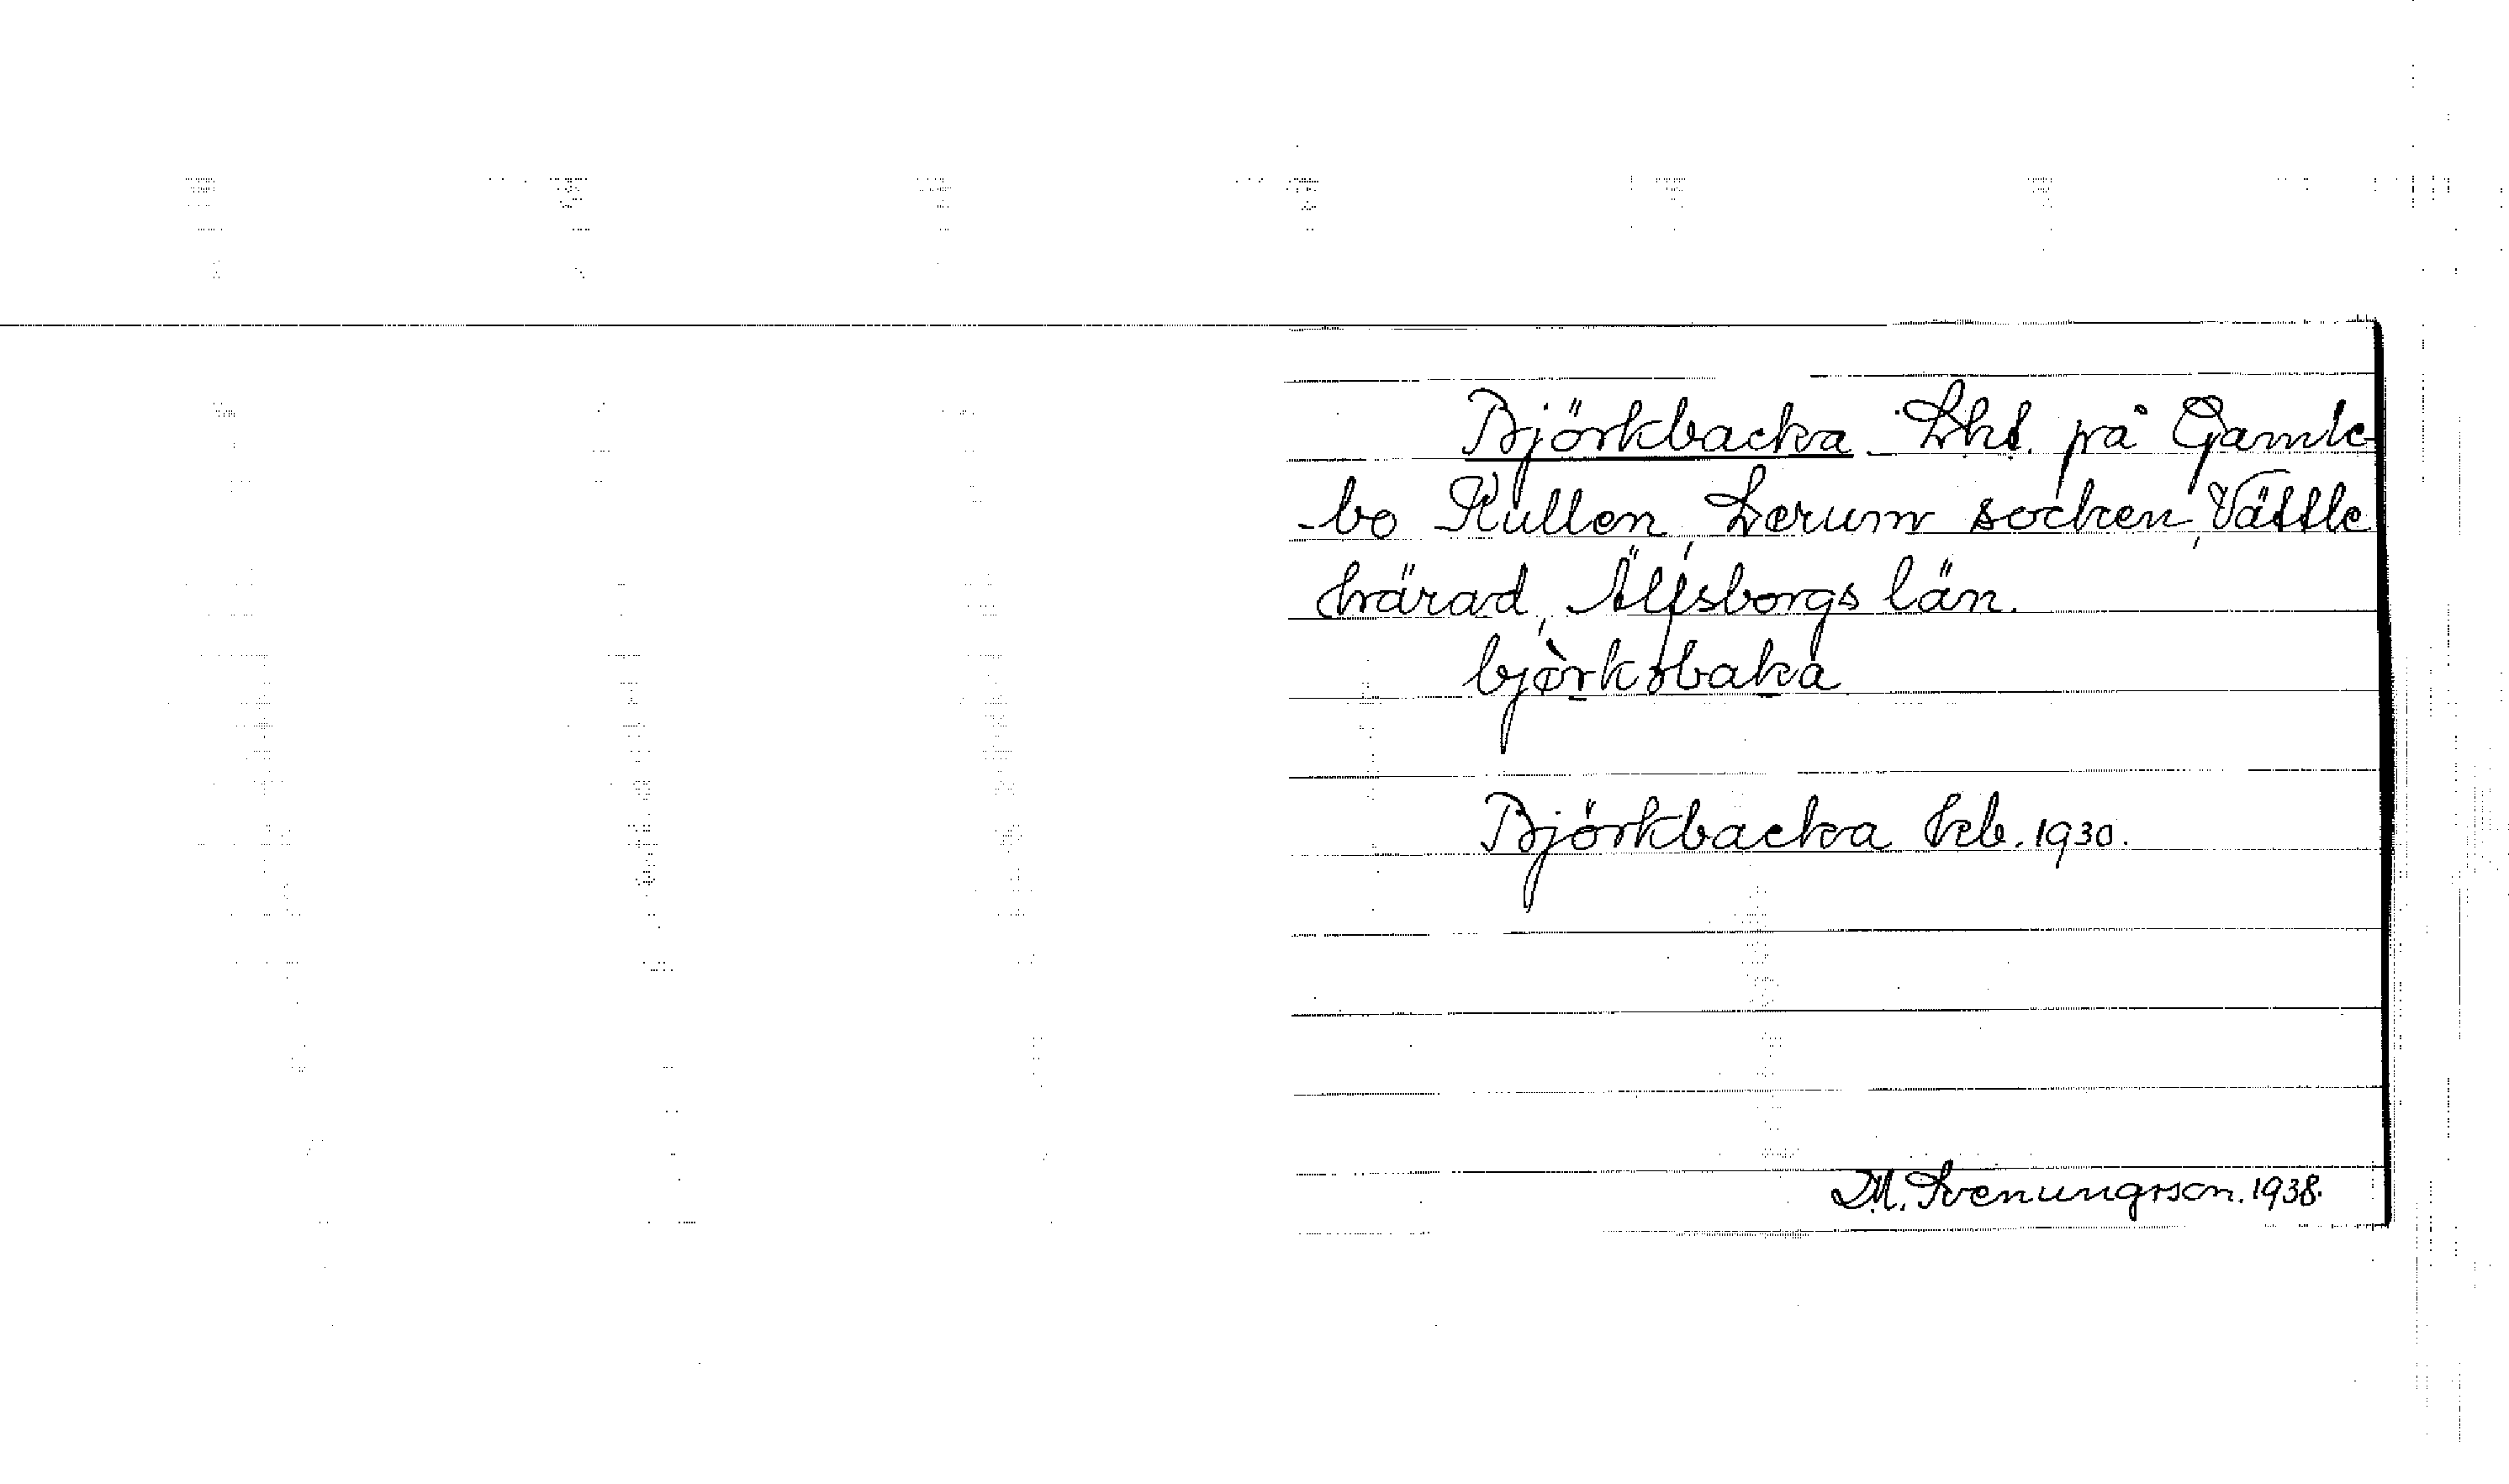 Björkbacka Lht. på Gamle
-bo Kullen, Lerum socken, Vättle
härad, Älfsborgs län.
bjòrkbaka
Björkbacka kb. 1930.
M. Svenungsson. 1938.